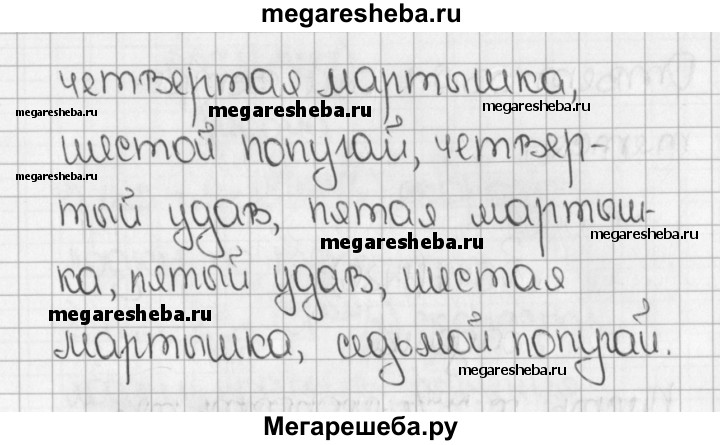 megaresheba.ru
четвертая мартышка,
megaresheba.ru megaresheba.ru megaresheba.ru
шестой попугай, четвер-
megaresheba.ru
тый удав, пятая мартыш-
megaresheba.ru megaresheba.ru
ка, пятый удав, шестая
megaresheba.ru
мартышка, седьмой попугай.
megaresheba.ru
Мегарешеба.ру